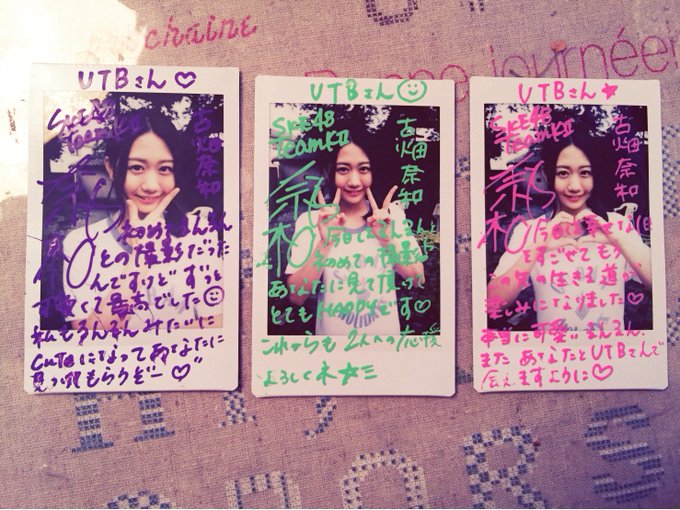 chaine
Bonne journée
UTBさん♡
SKE48
TeamKII
古畑奈和
初めてるんるん
との撮影だった
んですけどずっと
可愛くて最高でした☺
私もるんるんみたいに
cuteになってあなたに
見つけてもらうぞー♡
UTBさん☺
SKE48
TeamKII
古畑奈和
今日はるんるんと
初めての撮影
あなたに見て頂けて
とてもHAPPYです♡
これからも2人への応援
よろしくネ☆ミ
UTBさん★
SKE48
TeamKII
古畑奈和
今日は幸せな1日
をすごせてもう
生きる道が
楽しみになりました♡
本当に可愛いるんるん、
またあなたとUTBさんで
会えますように♡